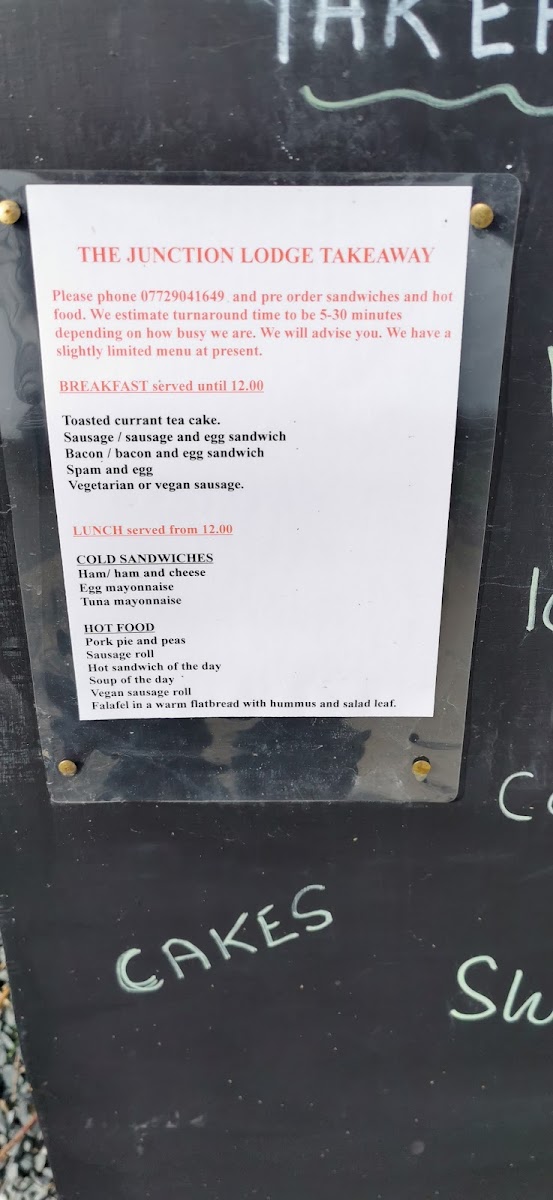 THE JUNCTION LODGE TAKEAWAY
Please phone 07729041649 and pre order sandwiches and hot
food. We estimate turnaround time to be 5-30 minutes
depending on how busy we are. We will advise you. We have a
slightly limited menu at present.
BREAKFAST served until 12.00
Toasted currant tea cake.
Sausage / sausage and egg sandwich
Bacon / bacon and egg sandwich
Spam and egg
Vegetarian or vegan sausage.
LUNCH served from 12.00
COLD SANDWICHES
Ham/ ham and cheese
Egg mayonnaise
Tuna mayonnaise
HOT FOOD
Pork pie and peas
Sausage roll
Hot sandwich of the day
Soup of the day
Vegan sausage roll
Falafel in a warm flatbread with hummus and salad leaf.
CAKES